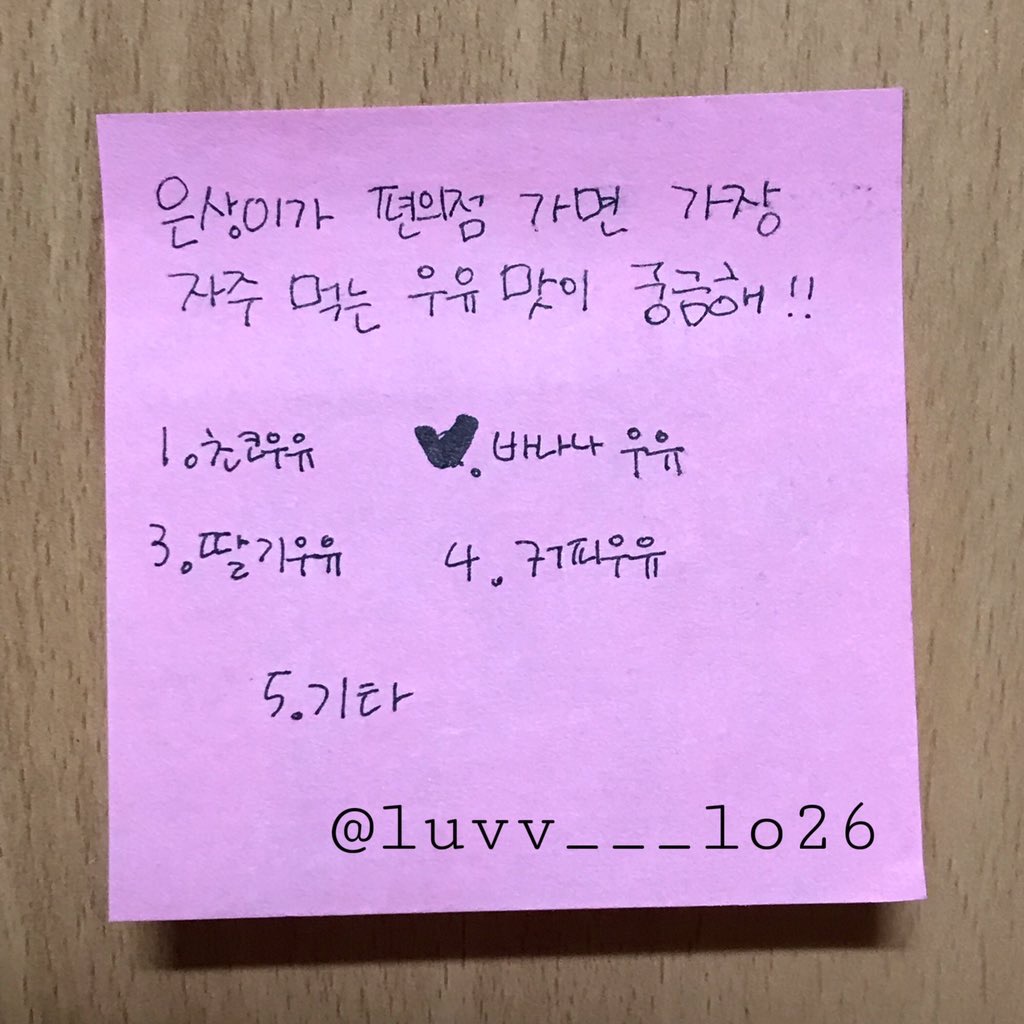 은상이가 편의점 가면 가장
자주 먹는 우유 맛이 궁금해!!
1. 초코우유 . 바나나 우유
3. 딸기우유 4. 커피우유
5. 기타
@luvv___lo26